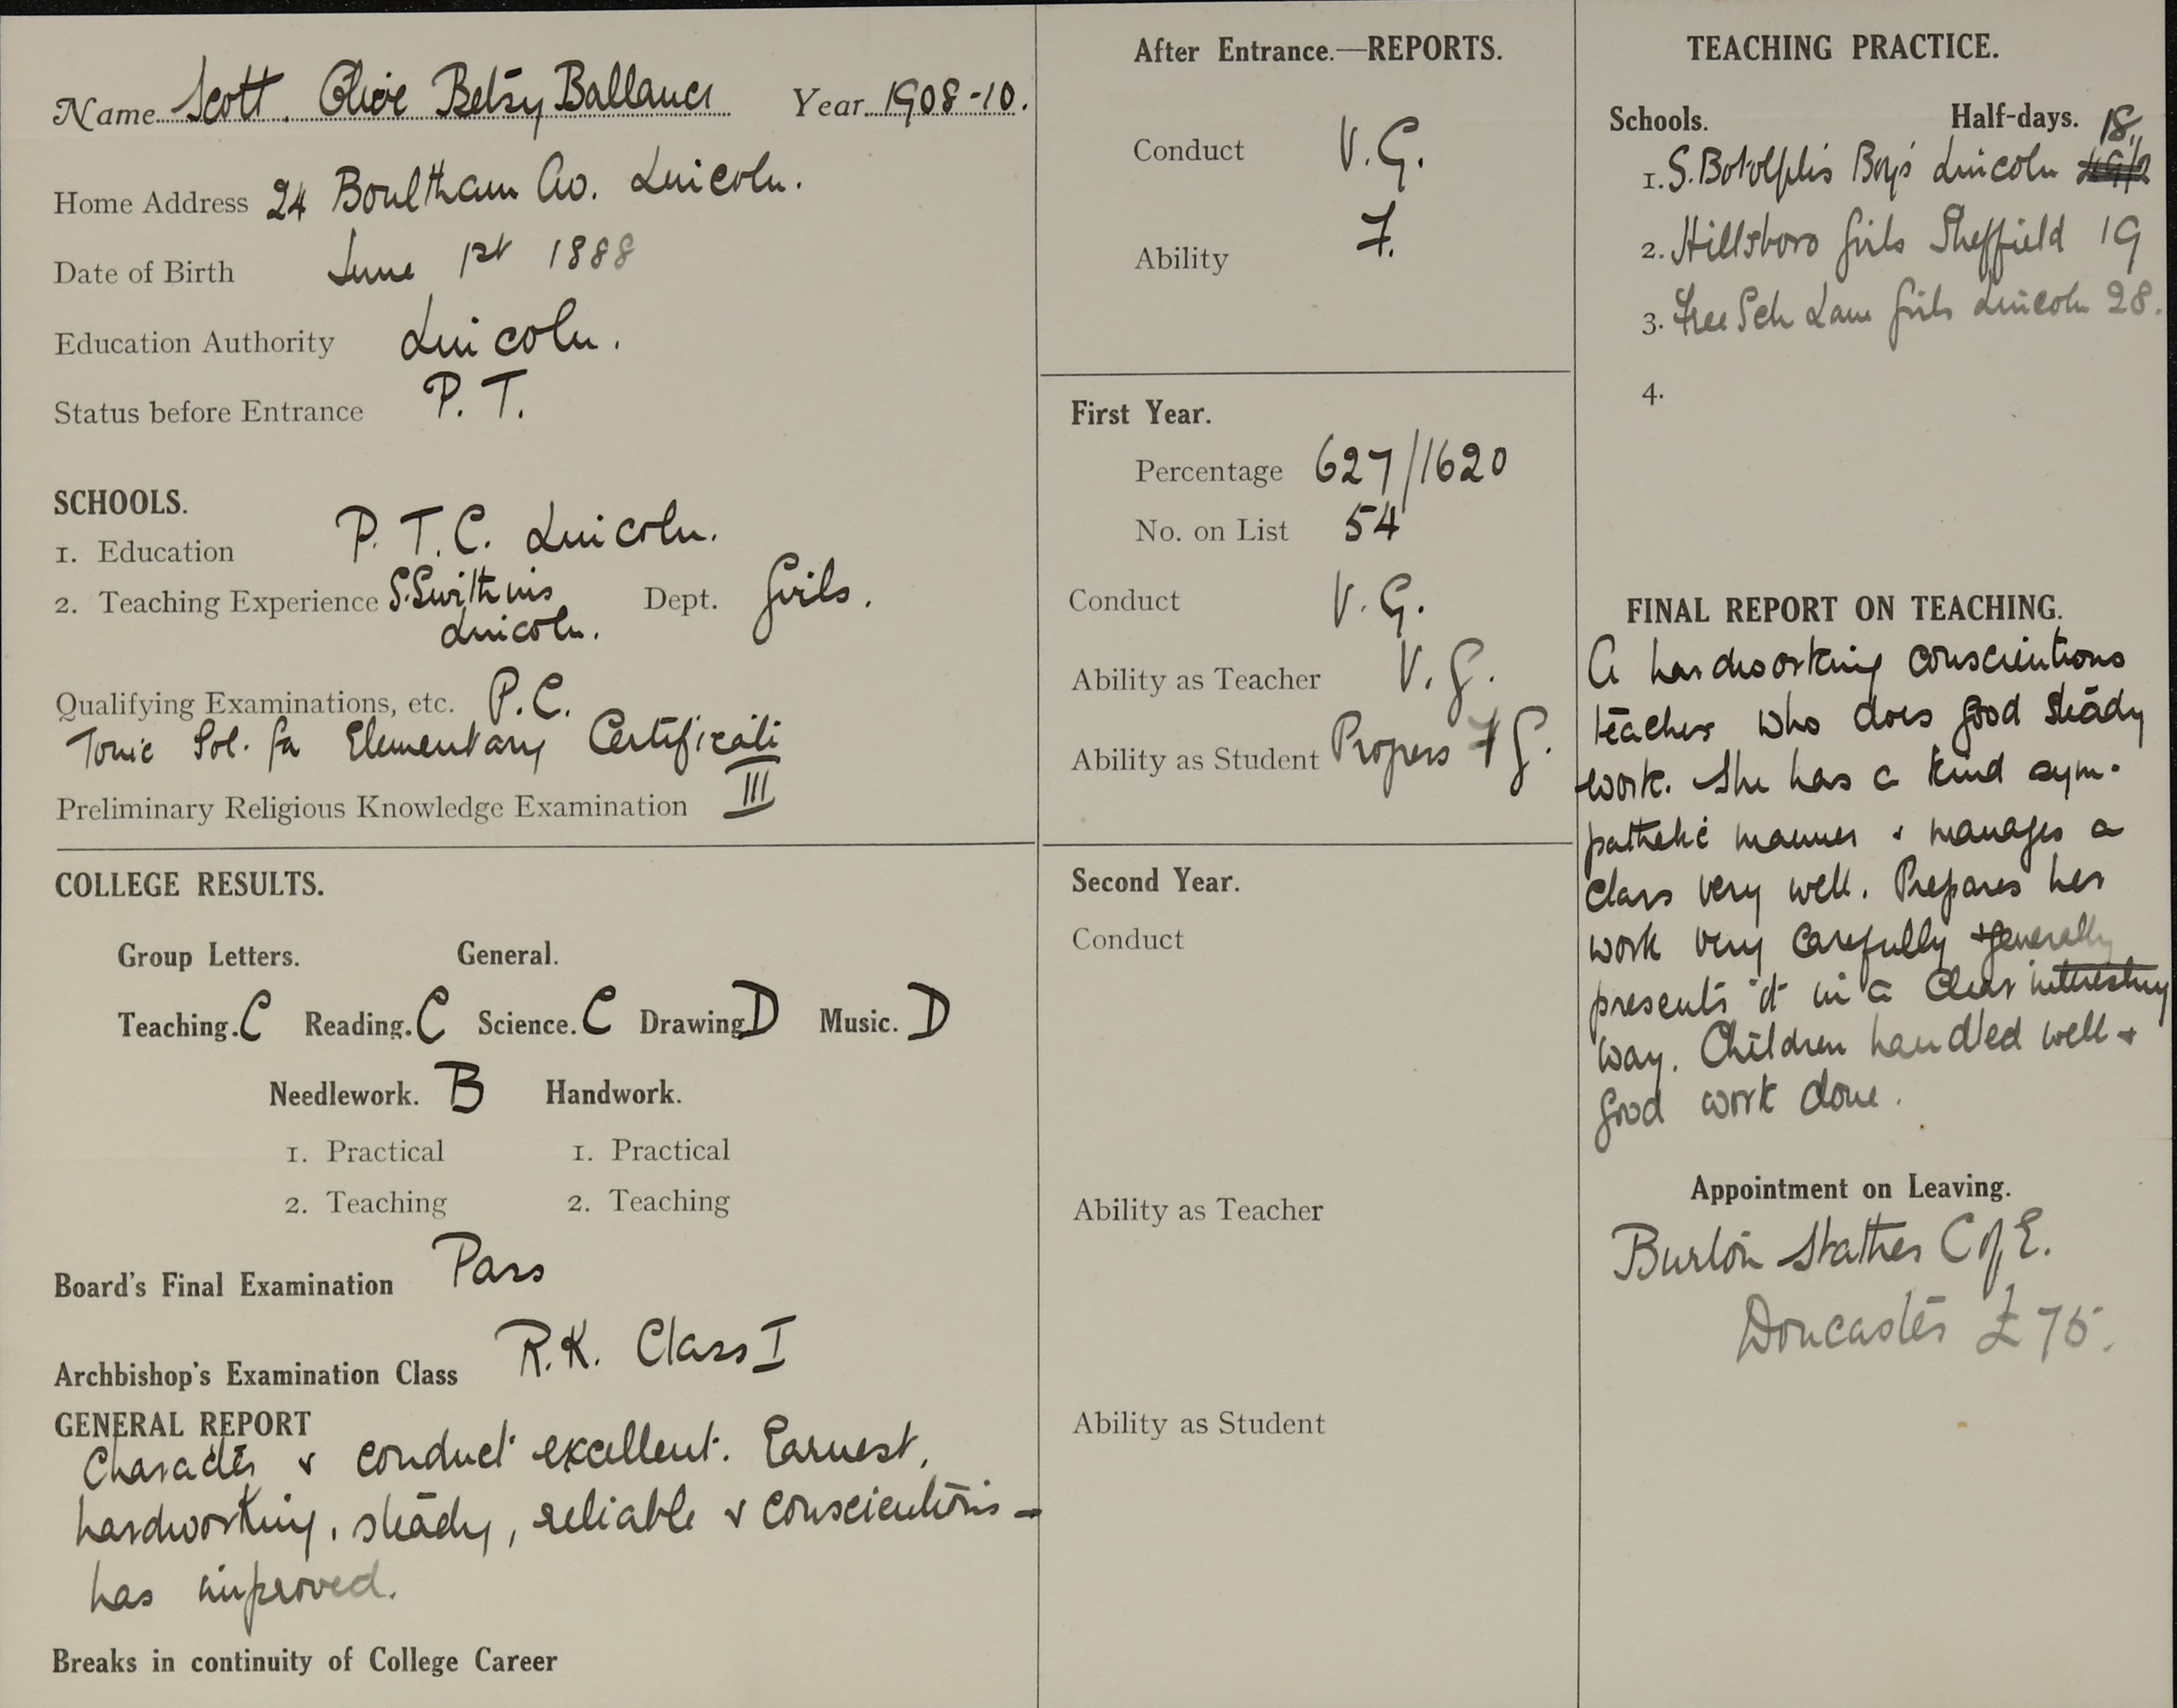 Name Scott. Olive Betsy Ballance Year 1908-10.
Home Address 24 Boultham Av. Lincoln.
Date of Birth June 1st 1888
Education Authority Lincoln.
Status before Entrance P.T.
SCHOOLS.
1. Education P.T.C. Lincoln.
2. Teaching Experience S. Swithins Dept. Girls.
Lincoln.
Qualifying Examinations, etc. P.C.
Tonic Sol. fa Elementary Certificate
Preliminary Religious Knowledge Examination III
COLLEGE RESULTS.
Group Letters. General.
Teaching. C Reading. C Science. C Drawing D Music. D
Needlework. B Handwork.
1. Practical 1. Practical
2. Teaching 2. Teaching
Board's Final Examination Pass
Archbishop's Examination Class R.K. Class I
GENERAL REPORT
Character & conduct excellent. Earnest,
hardworking, steady, reliable & conscientious -
has improved.
Breaks in continuity of College Career
After Entrance.—REPORTS.
Conduct V.G.
Ability F.
First Year.
Percentage 627/1620
No. on List 54
Conduct V.G.
Ability as Teacher V.G.
Ability as Student Progress F G.
Second Year.
Conduct
Ability as Teacher
Ability as Student
TEACHING PRACTICE.
Schools. Half-days. 18
1. S. Botolph's Boys Lincoln
2. Hillsboro Girls Sheffield 19
3. Free Sch Lane Girls Lincoln 28.
4.
FINAL REPORT ON TEACHING.
A hardworking conscientious
teacher who does good steady
work. She has a kind sym-
pathetic manner & manages a
class very well. Prepares her
work very carefully & generally
presents it in a clear interesting
way. Children handled well &
good work done.
Appointment on Leaving.
Burton Stather C of E.
Doncaster £75.